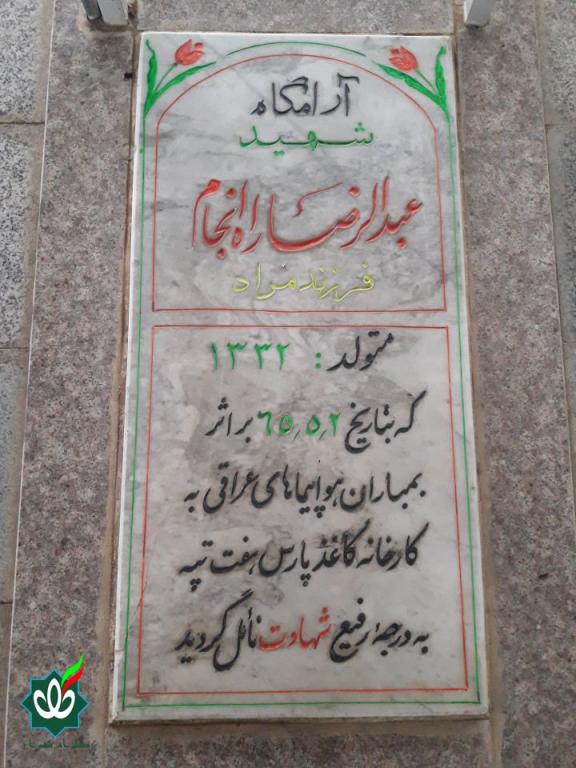 آرامگاه
شهید
عبدالرضا راه انجام
فرزند مراد
متولد : ۱۳۳۲
که بتاریخ ۶۵٫۵٫۲ براثر
بمباران هواپیماهای عراقی به
کارخانه کاغذ پارس هفت تپه
به درجهٔ رفیع شهادت نائل گردید